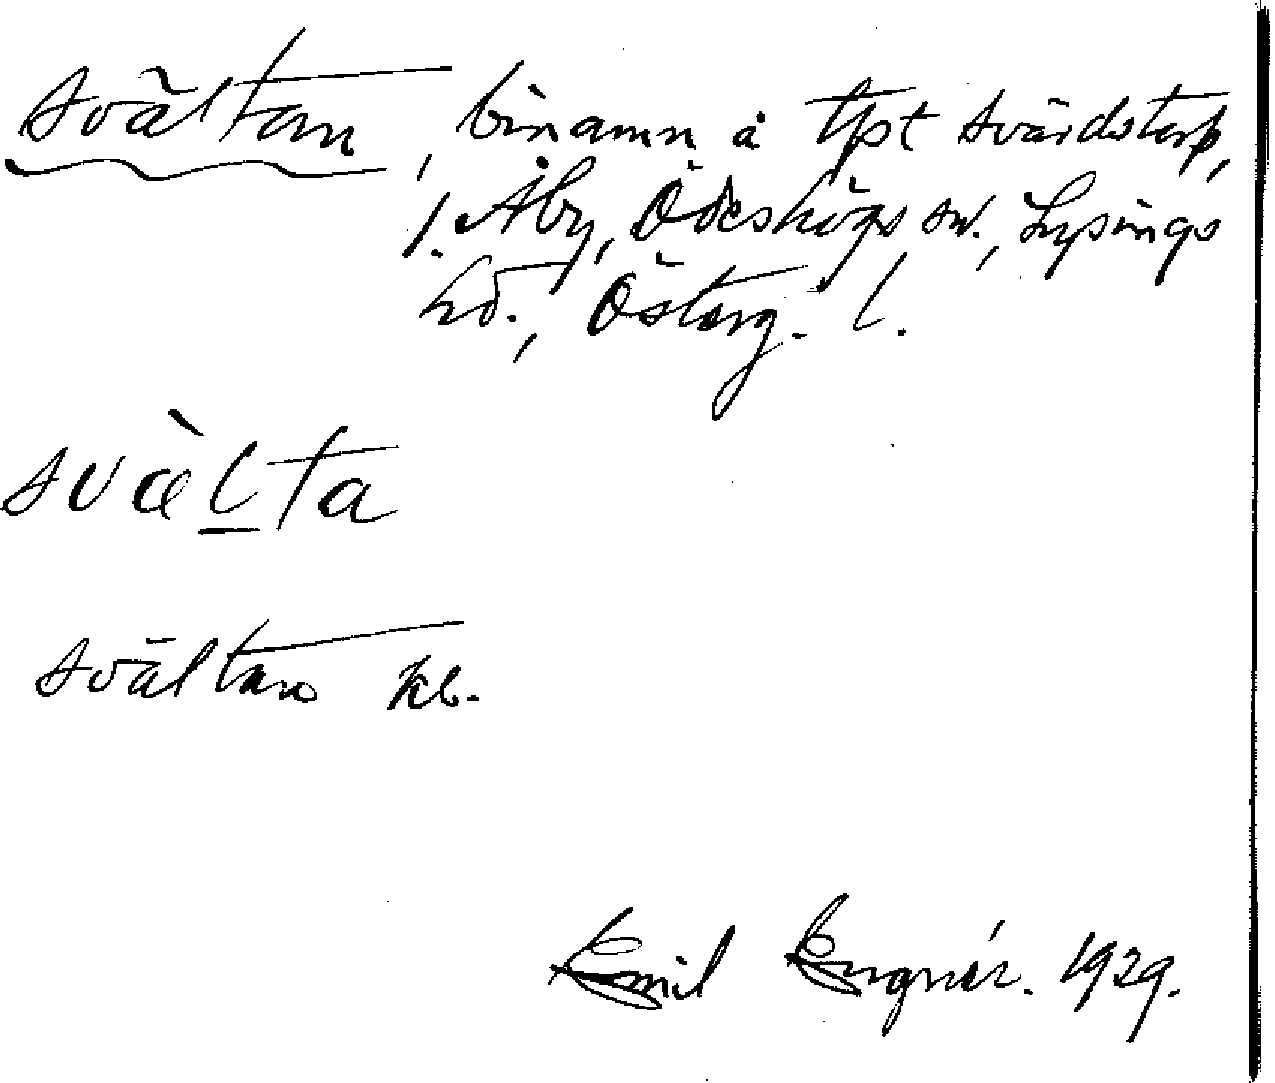 Svältan, binamn å tpt Svärdstorp,
l. Åby, Ödeshögs sn., Lysings
hd., Österg. l.
svæ̀lta
Svältan kb.
Emil Engnér. 1929.